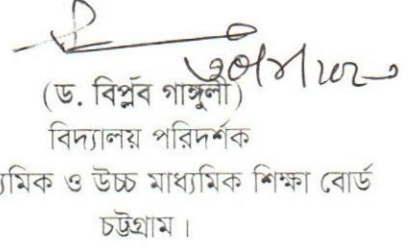 (ড. বিপ্লব গাঙ্গুলী)
বিদ্যালয় পরিদর্শক
ও উচ্চ মাধ্যমিক শিক্ষা বোর্ড
চট্টগ্রাম।